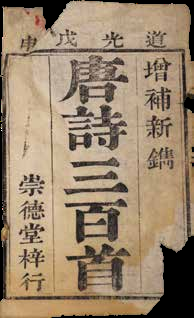 道光戊申
增補新鐫
唐詩三百首
崇德堂梓行